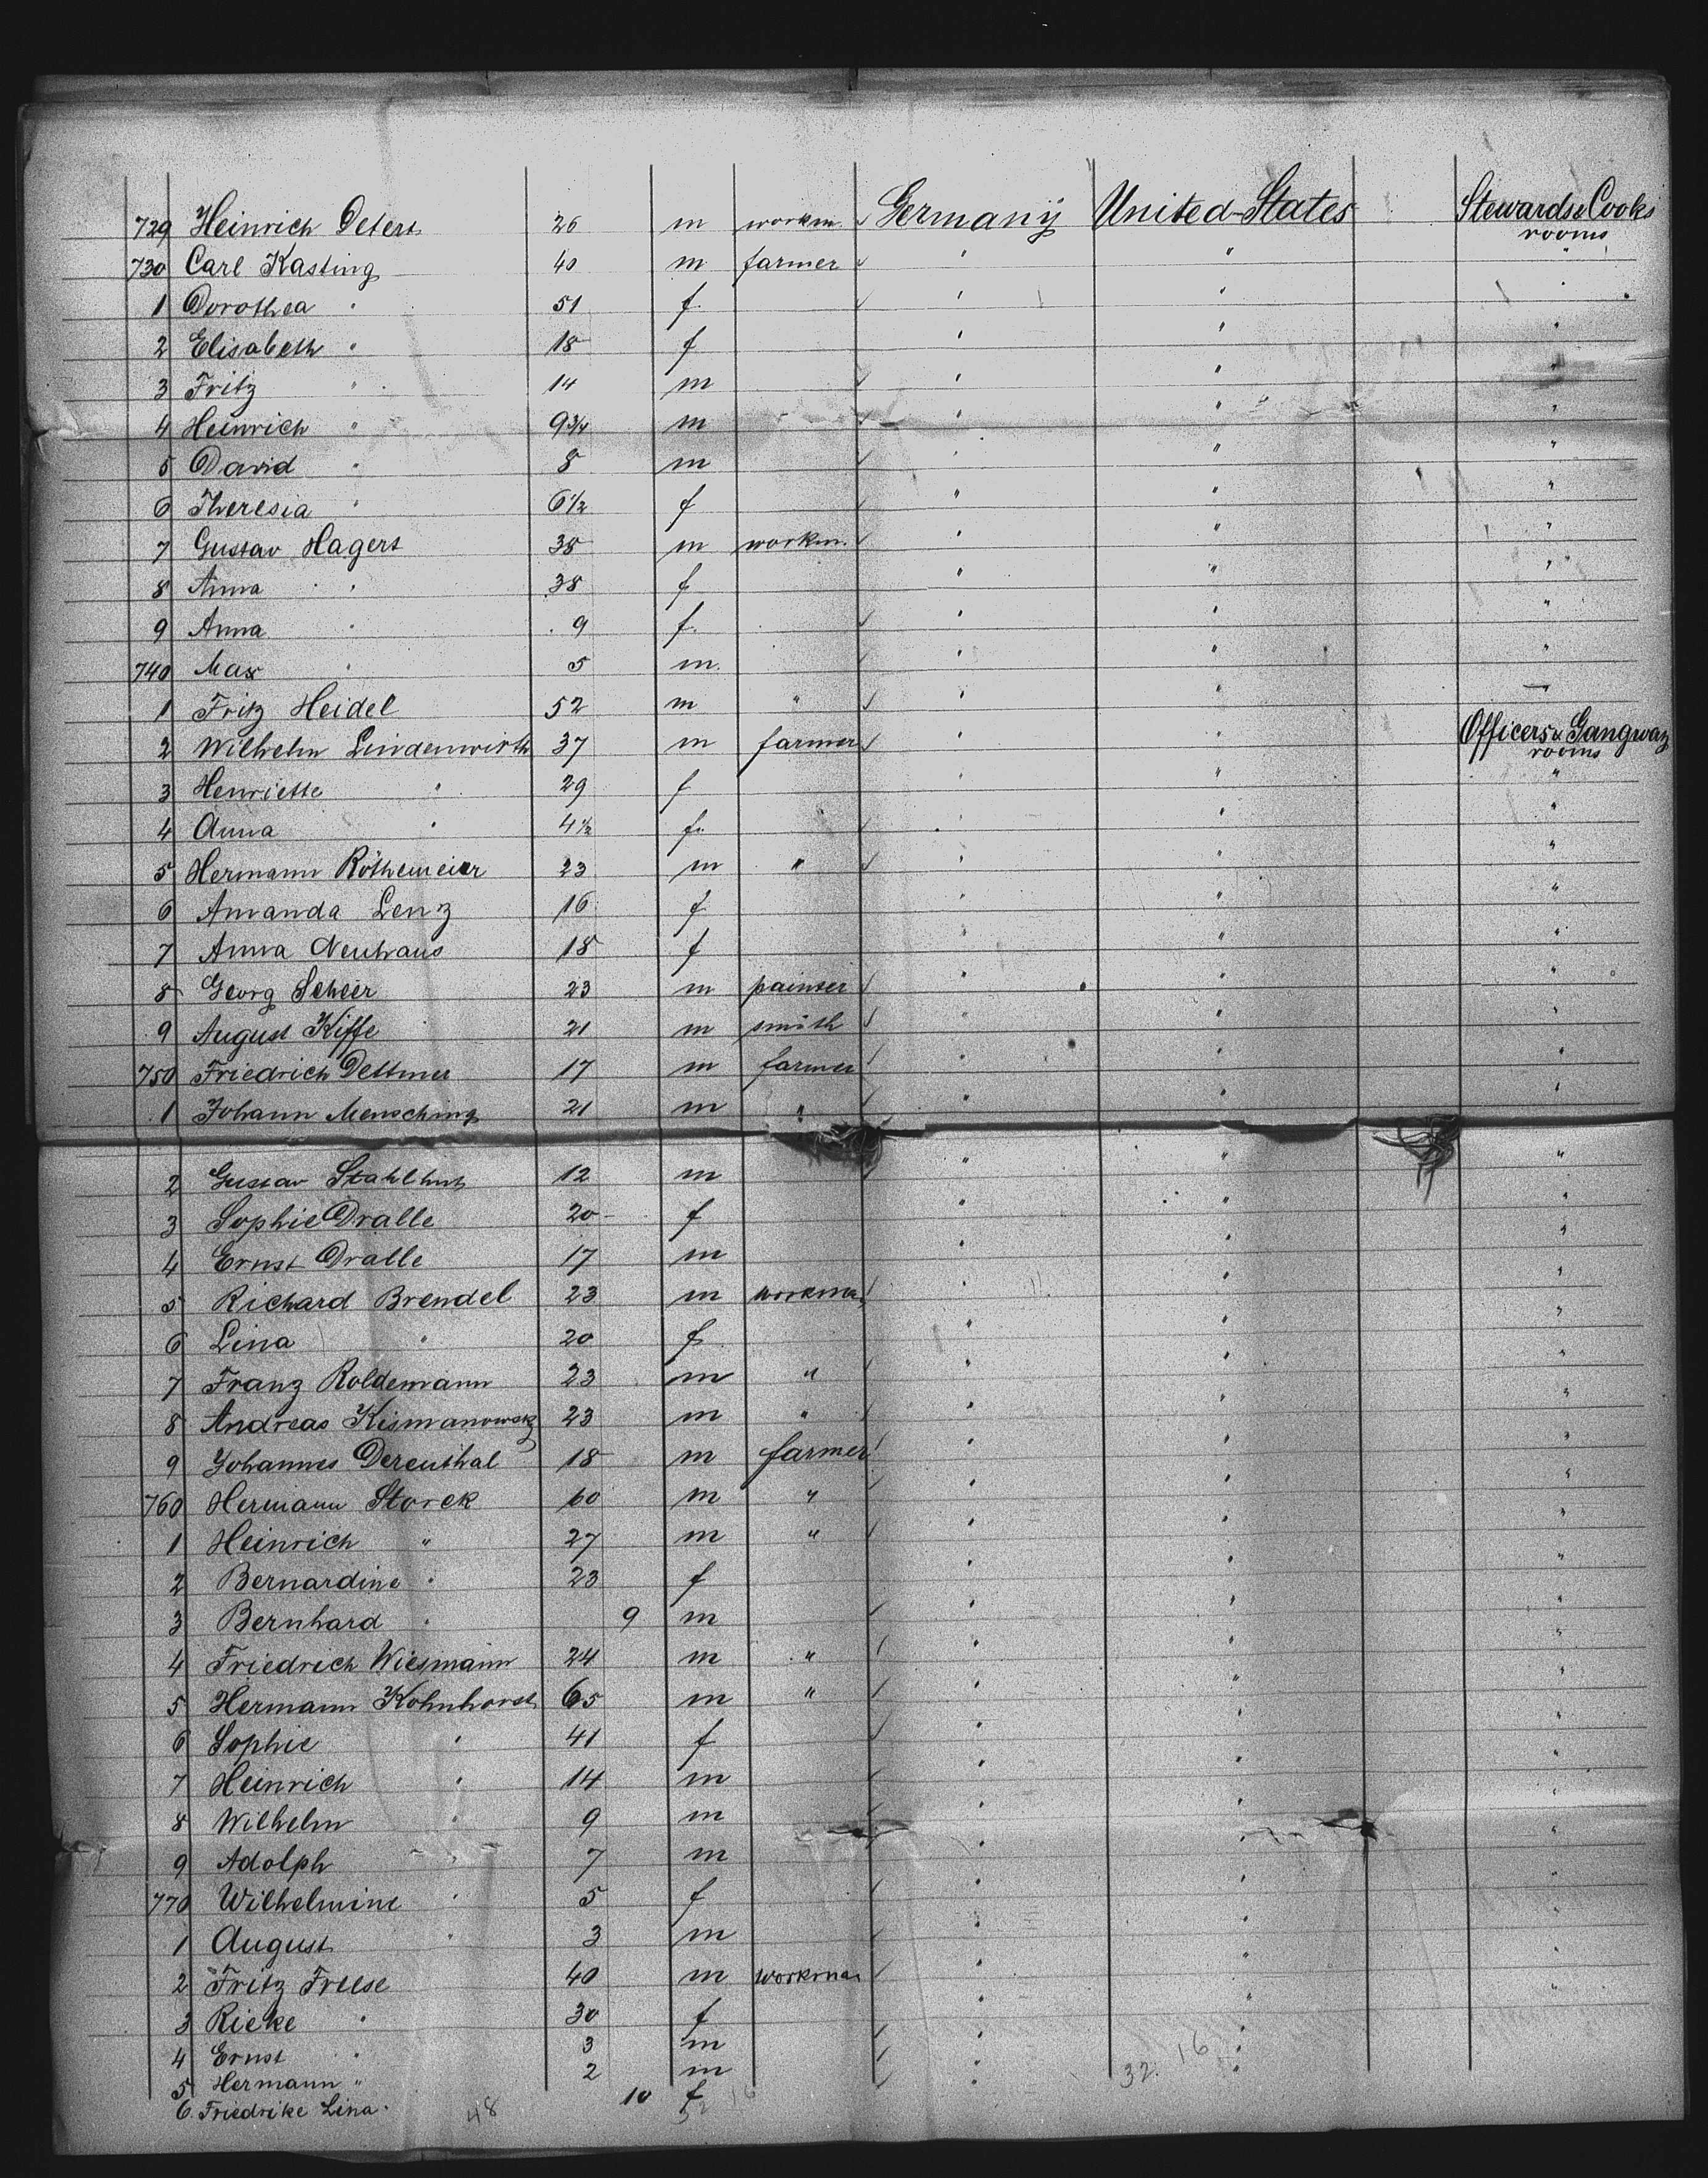 729 Heinrich Deters 26 m workm. Germany United-States Stewards & Cooks
rooms
730 Carl Kasting 40 m farmer " " "
1 Dorothea " 51 f. " " "
2 Elisabeth " 18 f " " "
3 Fritz " 14 m " " "
4 Heinrich " 9 3/4 m " " "
5 David " 8 m " " "
6 Theresia " 6 1/2 f " " "
7 Gustav Hagert 38 m workm. " " "
8 Anna " 38 f " " "
9 Anna " 9 f. " " "
740 Max " 5 m. " " "
1 Fritz Heidel 52 m " " " —
2 Wilhelm Lindenwirth 37 m farmer " " Officers & Gangway
rooms
3 Henriette " 29 f " " "
4 Anna " 4 1/2 f. " " "
5 Hermann Röthemeier 23 m " " " "
6 Amanda Lenz 16 f " " "
7 Anna Neuhaus 18 f " " "
8 Georg Scheer 23 m painter " " "
9 August Kiffe 21 m smith " " "
750 Friedrich Dettmer 17 m farmer " " "
1 Johann Mensching 21 m " " " "
2 Gustav Stahlhut 12 m " " "
3 Sophie Dralle 20 f " " "
4 Ernst Dralle 17 m " " "
5 Richard Brendel 23 m workman " " "
6 Lina " 20 f " " "
7 Franz Roldemann 23 m " " " "
8 Andreas Kismanowsky 23 m " " " "
9 Johannes Derenthal 18 m farmer " " "
760 Hermann Storck 60 m " " " "
1 Heinrich " 27 m " " " "
2 Bernardine " 23 f " " "
3 Bernhard " 9 m " " "
4 Friedrich Wiesmann 24 m " " " "
5 Hermann Kohnhorst 65 m " " " "
6 Sophie " 41 f " " "
7 Heinrich " 14 m " " "
8 Wilhelm " 9 m " " "
9 Adolph " 7 m " " "
770 Wilhelmine " 5 f " " "
1 August " 3 m " " "
2 Fritz Freese 40 m workman " " "
3 Rieke " 30 f " "
4 Ernst " 3 m " 16 "
5 Hermann " 2 m " 32. "
6. Friedrike Lina. 48 10 f 16
32